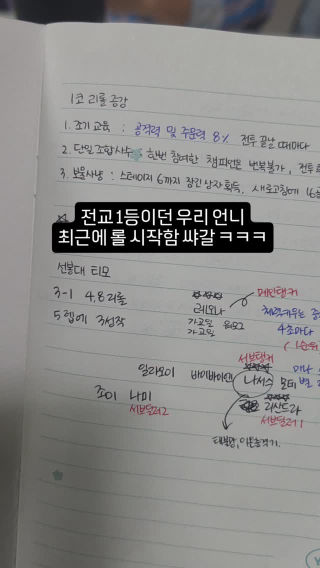 1코 리롤 증강
1. 조기 교육 : 공격력 및 주문력 8% 전투 끝날 때마다
2. 단일 조합사수 한번 참여한 챔피언은 번복불가, 전투
3. 보물사냥 : 스테이지 6까지 장신상자 획득, 새로고침에
전교 1등이던 우리 언니
최근에 롤 시작함 쌰갈 ㅋㅋㅋ
선봉대 티모
3-1 4.8리롤
5렙에 3성작
메인탱커
레오나
가고일 워모그
가고일
체력
4초마다
1순위
서브탱커
일라오이 바이바이앤 나서스
조이 나미
서브딜러2
리산드라
서브딜러1
태블망, 이온충격기.